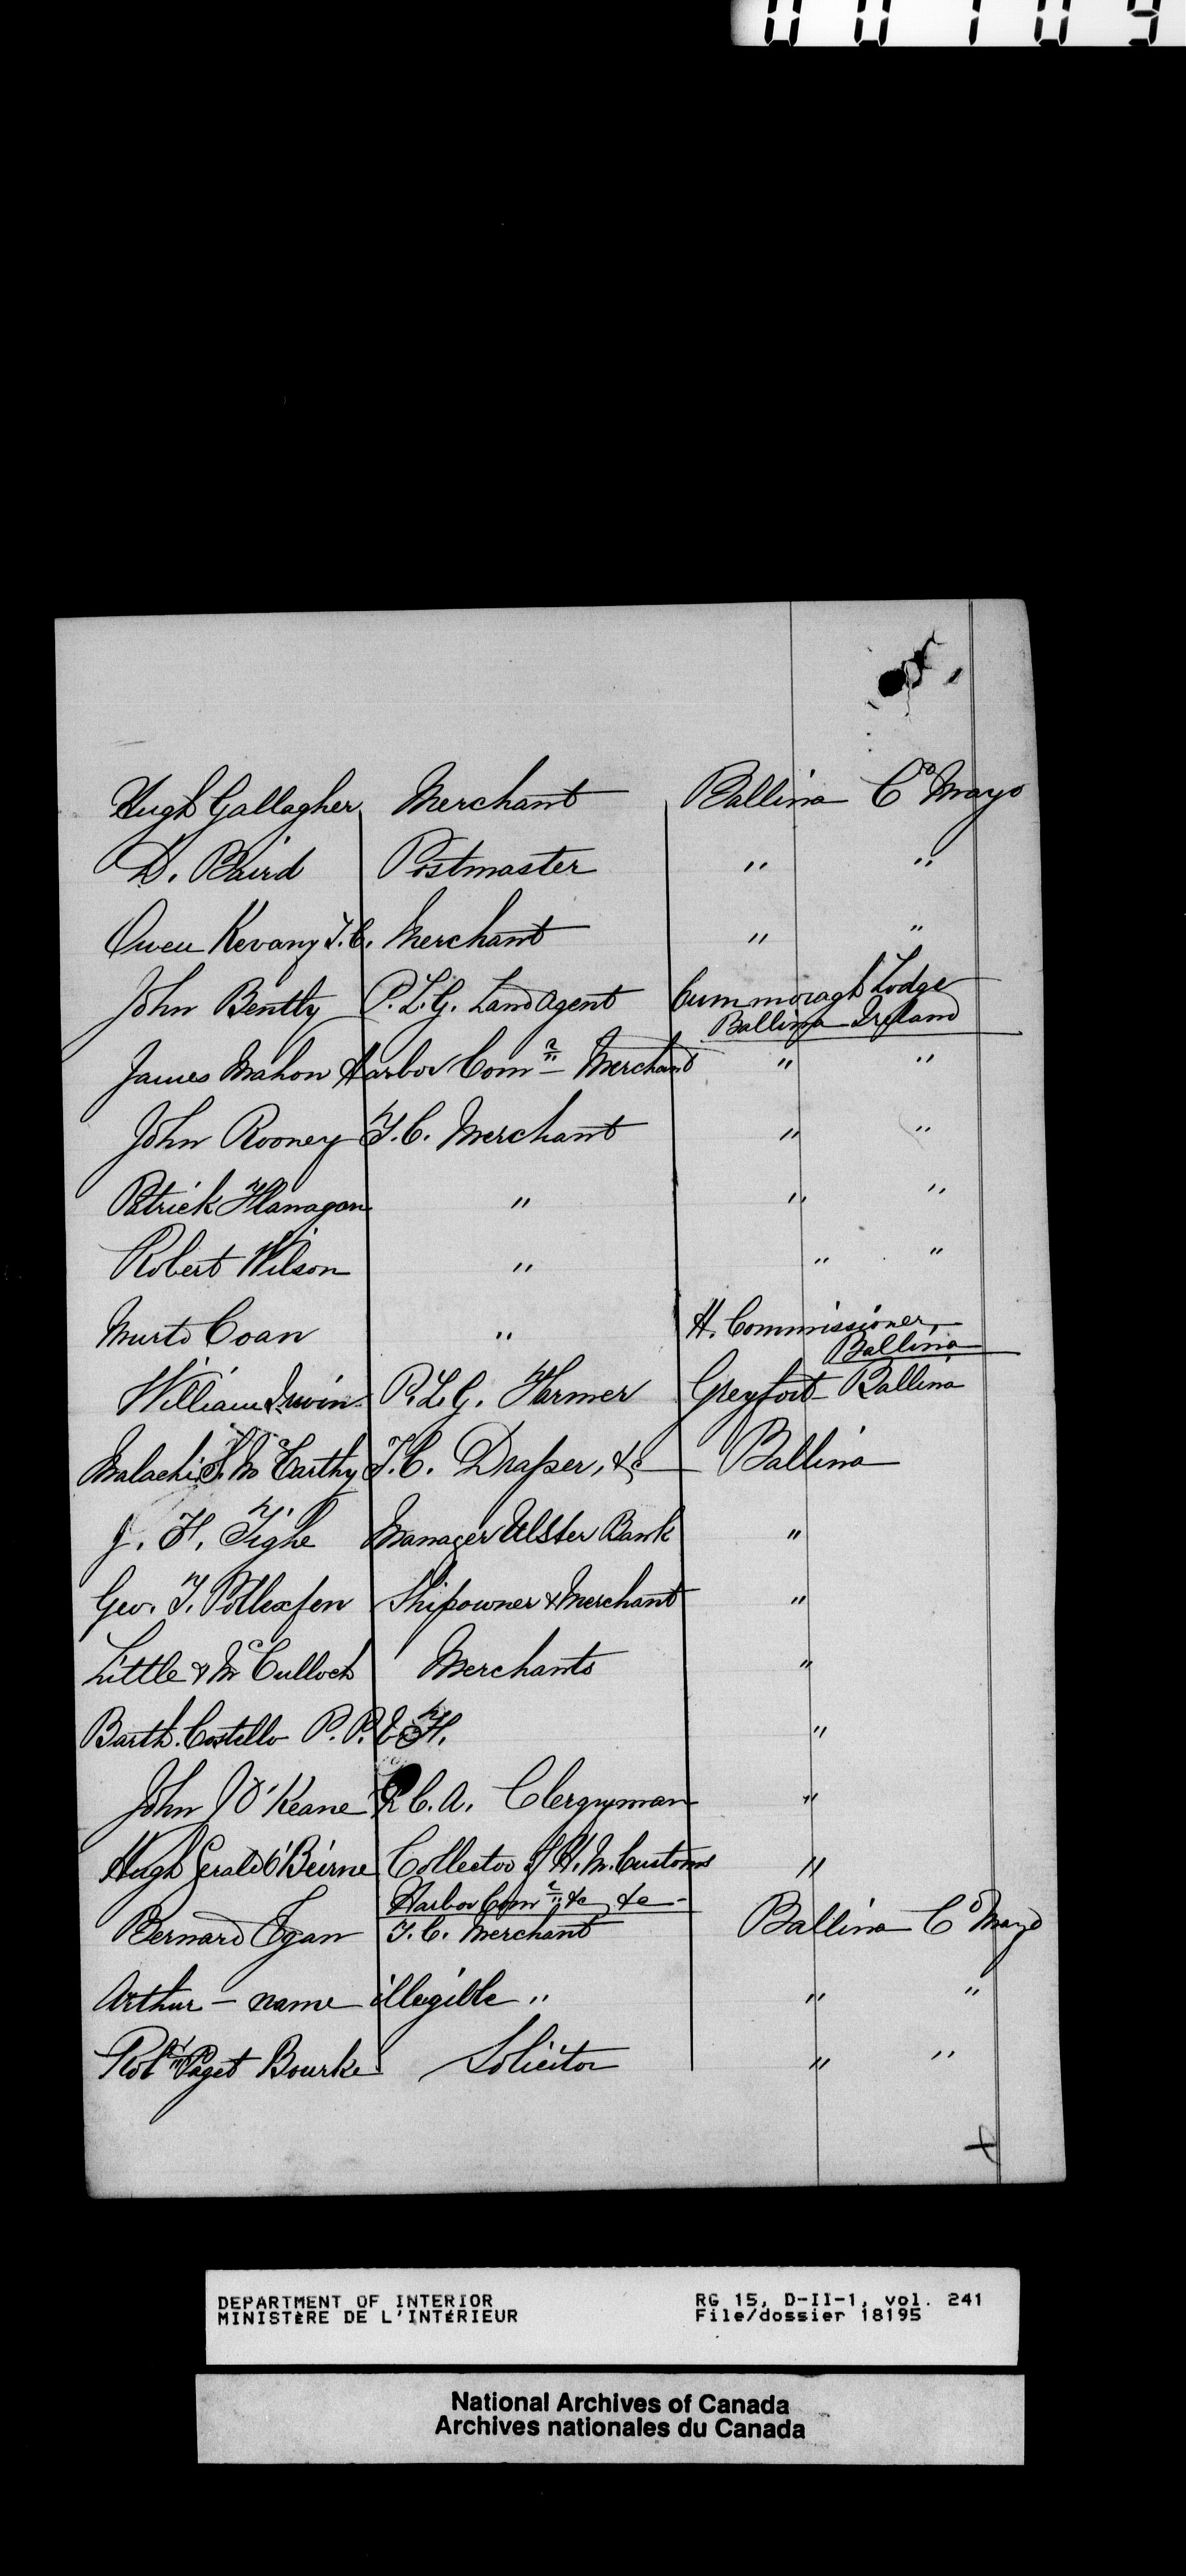 00109
Hugh Gallagher Merchant Ballina Co Mayo
D. Baird Postmaster " "
Owen Kevany T.C. Merchant " "
John Bently P.L.G. Land Agent Cummoragh Lodge
Ballina Ireland
James Mahon Harbor Comr Merchant " "
John Rooney T.C. Merchant " "
Patrick Flanagan " " "
Robert Wilson " " "
Murto Coan " H. Commissioner,
Ballina
William Irwin P.L.G. Farmer Greyfort Ballina
Malachi S. McCarthy T.C. Draper, &c Ballina
J. H. Tighe Manager Ulster Bank "
Geo. T. Pollexfen Shipowner & Merchant "
Little & McCulloch Merchants "
Barth. Costello P.P. V.F. "
John J O'Keane R.C.A. Clergyman "
Hugh Gerald O'Beirne Collector of H.M. Customs "
Harbor Comr &c &c
Bernard Egan T.C. Merchant Ballina Co Mayo
Arthur - name illegible " " "
Robt Paget Bourke Solicitor " "
DEPARTMENT OF INTERIOR RG 15, D-II-1, vol. 241
MINISTÈRE DE L'INTÉRIEUR File/dossier 18195
National Archives of Canada
Archives nationales du Canada